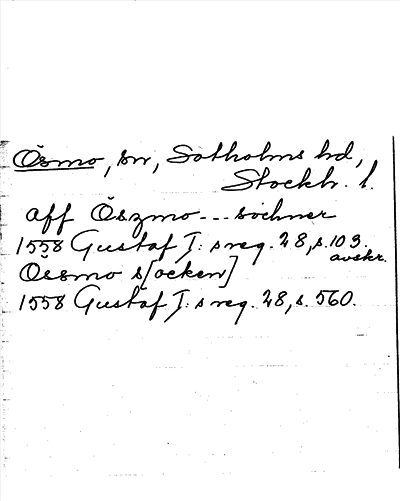 Ösmo, sn, Sotholms hd,
Stockh. l.
aff Öszmo --- sochner
1558 Gustaf I: s reg. 28, s. 103.
avskr.
Össmo s[ocken]
1558 Gustaf I: s reg. 28, s. 560.